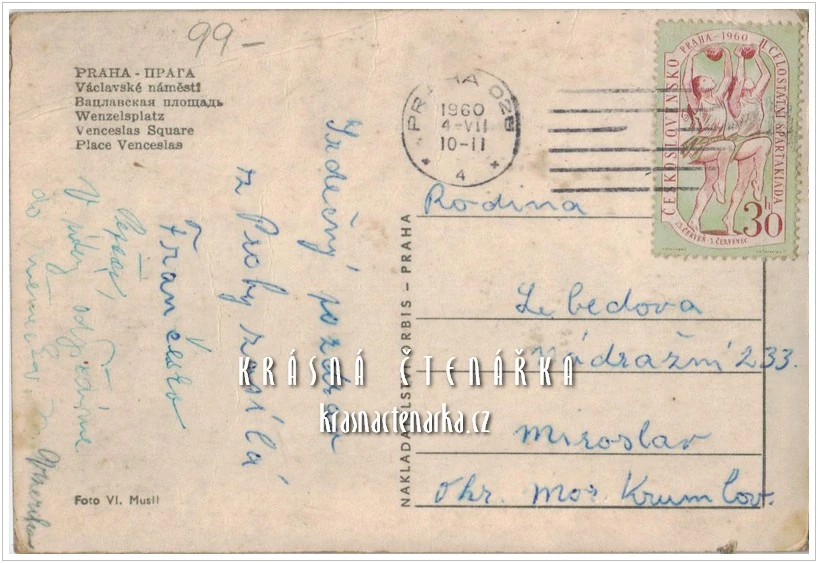 99–
PRAHA - ПРАГА
Václavské náměstí
Вацлавская площадь
Wenzelsplatz
Venceslas Square
Place Venceslas
PRAHA 025
1960
4-VII
10-11
* 4 *
ČESKOSLOVENSKO
PRAHA-1960
II. CELOSTÁTNÍ SPARTAKIÁDA
23. ČERVEN - 3. ČERVENEC
30 h
Srdečný pozdrav
z Prahy zasílá
Frant. Česko
V úterý odjíždíme
do německa
Rodina
Lebedova
Nádražní 233.
Miroslav
Okr. Mor. Krumlov.
NAKLADATELSTVÍ ORBIS – PRAHA
Foto Vl. Musil
KRÁSNÁ ČTENÁŘKA
krasnactenarka.cz